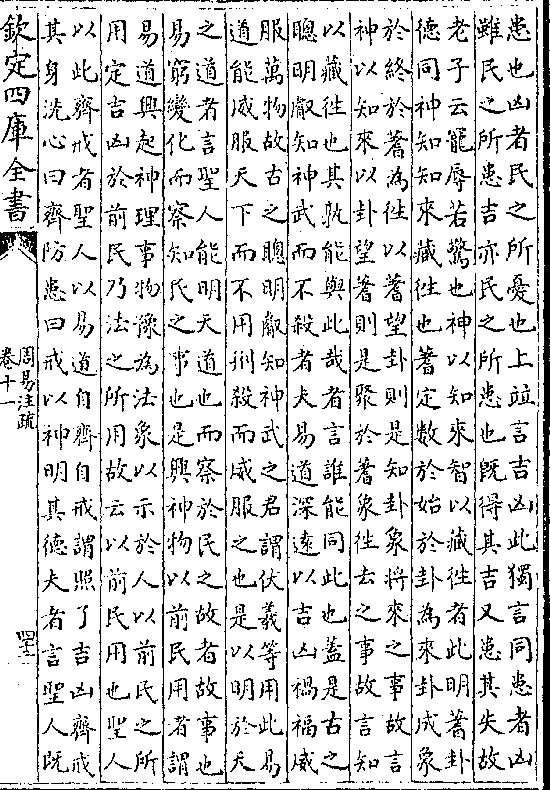 患也凶者民之所憂也上竝言吉凶此獨言同患者凶
雖民之所患吉亦民之所患也既得其吉又患其失故
老子云寵辱若驚也神以知來智以藏徃者此明蓍卦
德同神知知來藏徃也蓍定數於始於卦為來卦成象
於終於蓍為徃以蓍望卦則是知卦象將來之事故言
神以知來以卦望蓍則是聚於蓍象徃去之事故言知
以藏徃也其孰能與此哉者言誰能同此也蓋是古之
聰明叡知神武而不殺者夫易道深遠以吉凶禍福威
服萬物故古之聰明叡知神武之君謂伏羲等用此易
道能威服天下而不用刑殺而威服之也是以明於天
之道者言聖人能明天道也而察於民之故者故事也
易窮變化而察知民之事也是興神物以前民用者謂
易道興起神理事物豫為法象以示於人以前民之所
用定吉凶於前民乃法之所用故云以前民用也聖人
以此齊戒者聖人以易道自齊自戒謂照了吉凶齊戒
其身洗心曰齊防患曰戒以神明其德夫者言聖人既
欽定四庫全書
周易注疏
卷十一